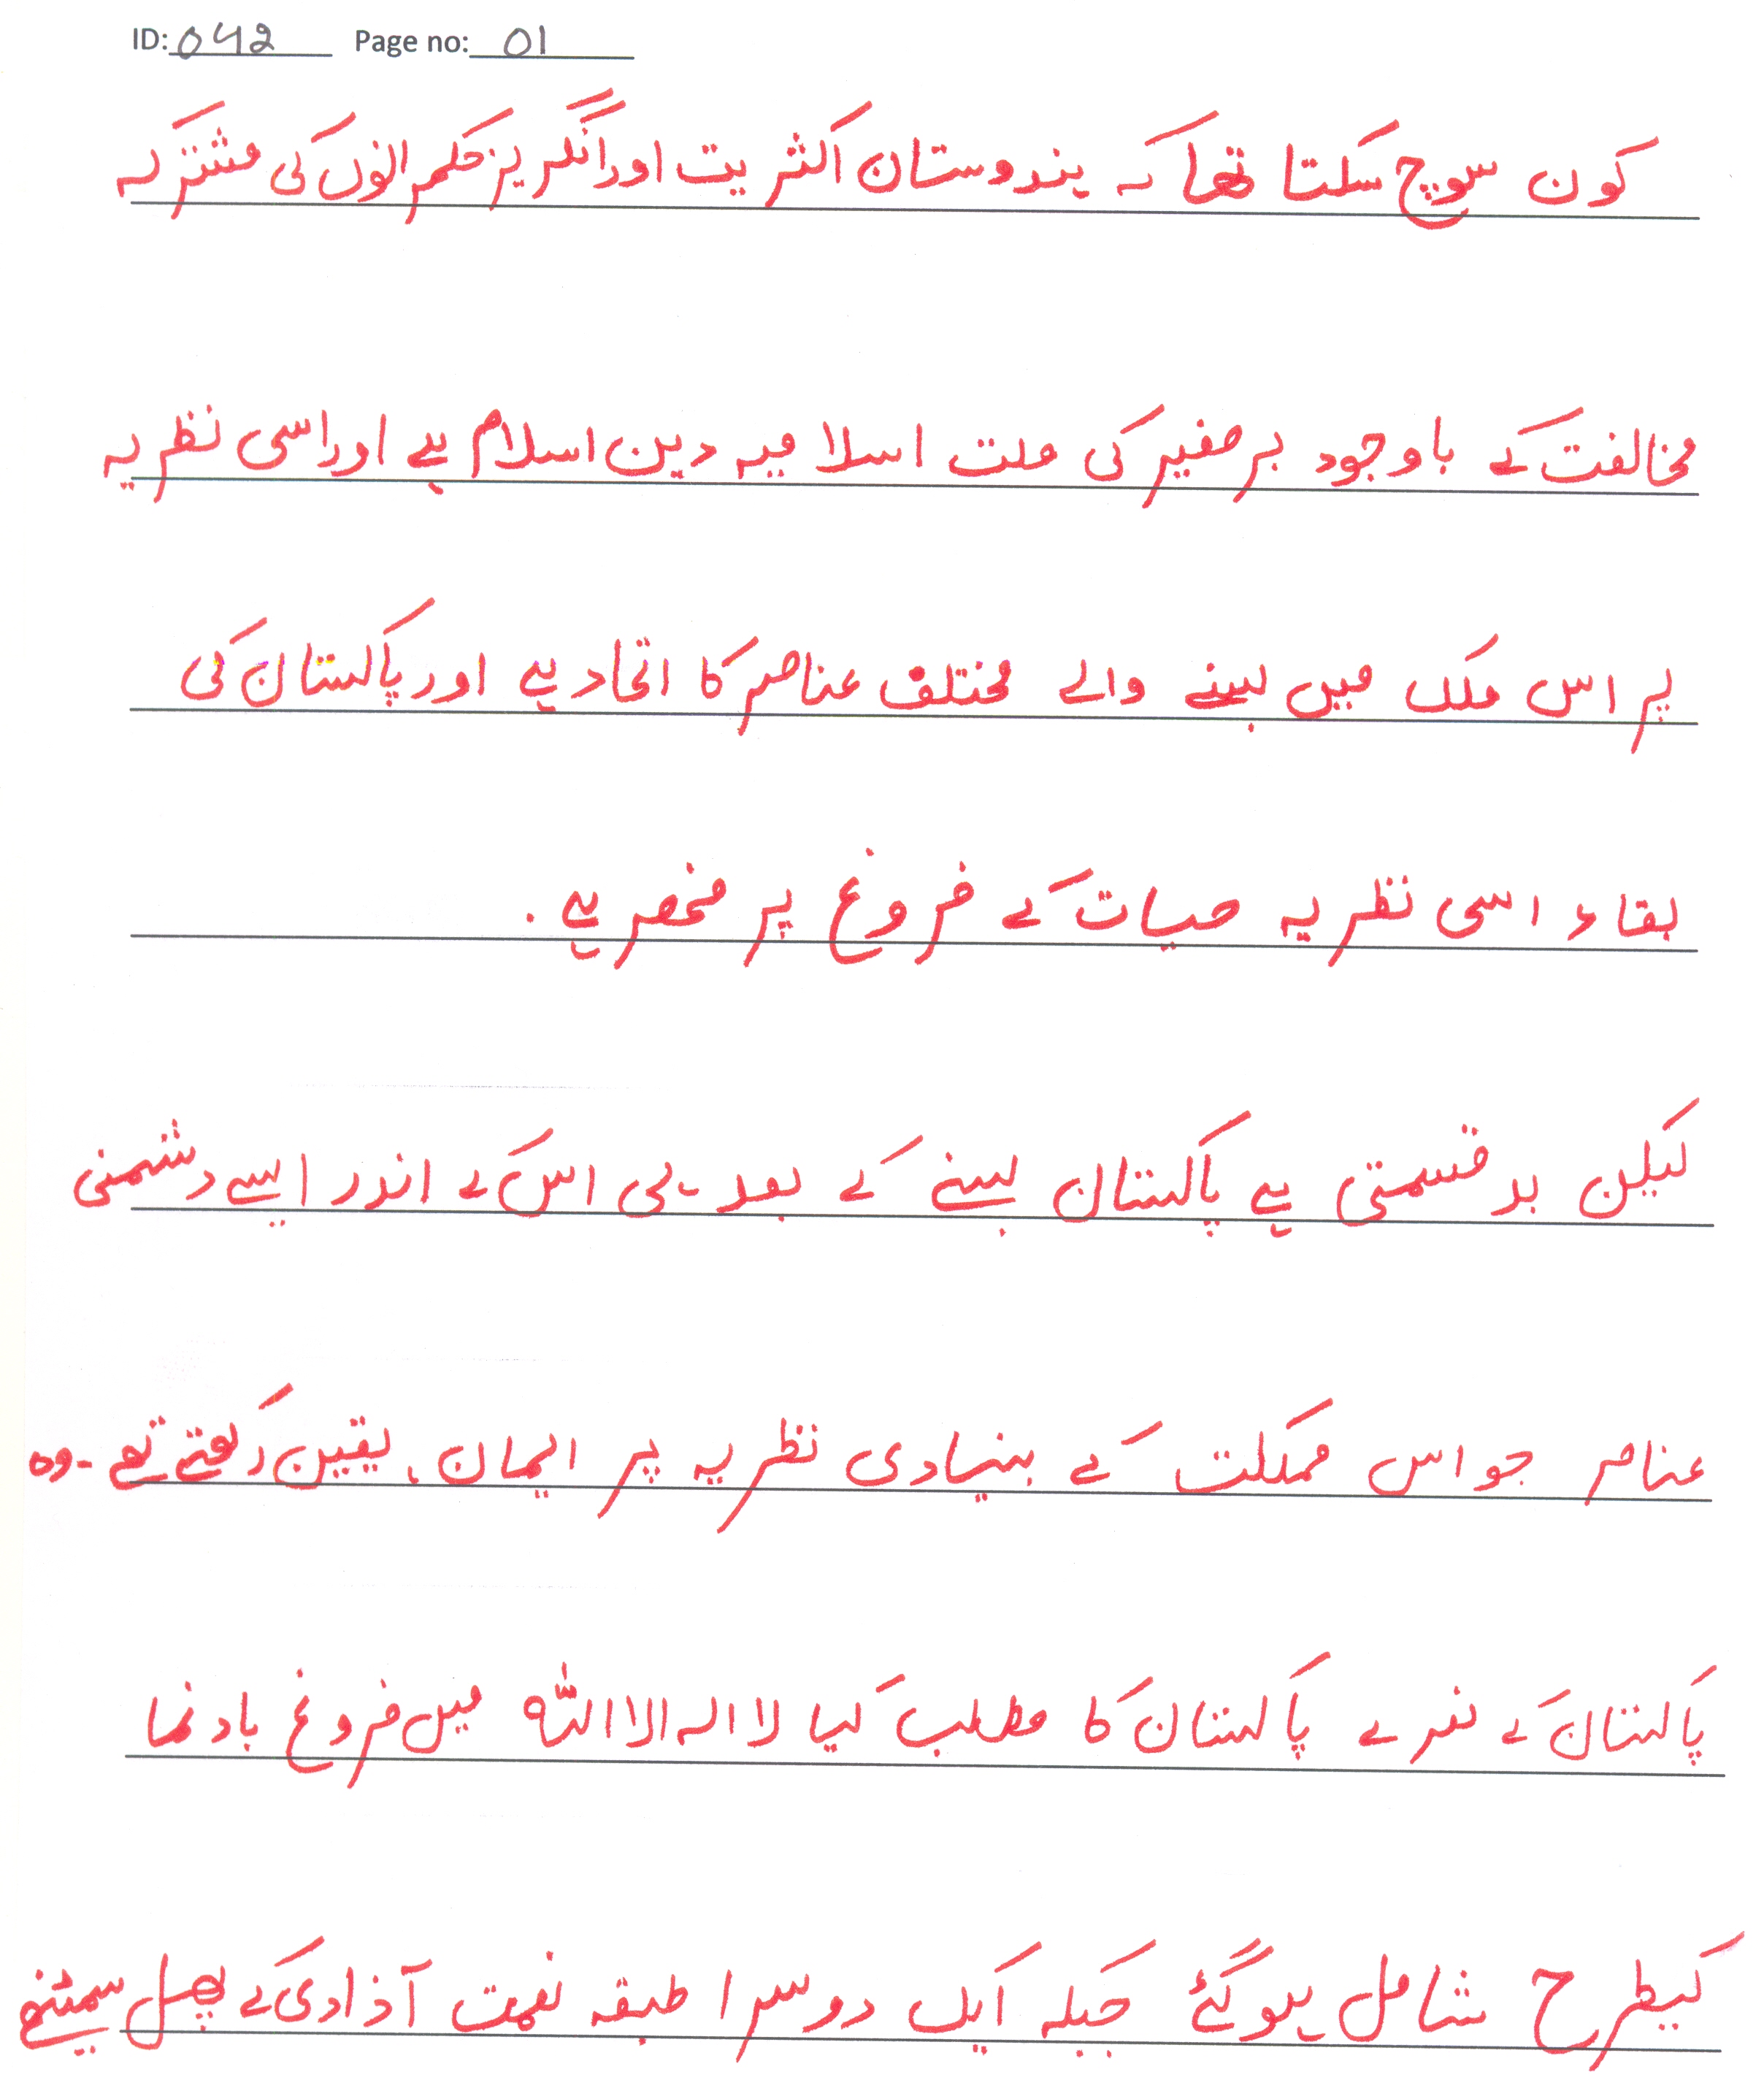 ID: 042 Page no: 01
کون سوچ سکتا تھا کہ ہندوستان اکثریت اور انگریز حکمرانوں کی مشترکہ
مخالفت کے باوجود برصغیر کی ملت اسلامیہ دین اسلام ہے اور اسی نظریہ
پر اس ملک میں بسنے والے مختلف عناصر کا اتحاد ہے اور پاکستان کی
بقاء اسی نظریہ حیات کے فروغ پر منحصر ہے.
لیکن بدقسمتی ہے پاکستان بننے کے بعد ہی اس کے اندر ایسے دشمنی
عناصر جو اس مملکت کے بنیادی نظریہ پر ایمان، یقین رکھتے تھے - وہ
پاکستان کے نعرے پاکستان کا مطلب کیا لا الہ الا اللہ میں فروغ بادنما
کیطرح شامل ہو گئے جبکہ ایک دوسرا طبقہ نعمت آذادی کے پھل سمیٹنے